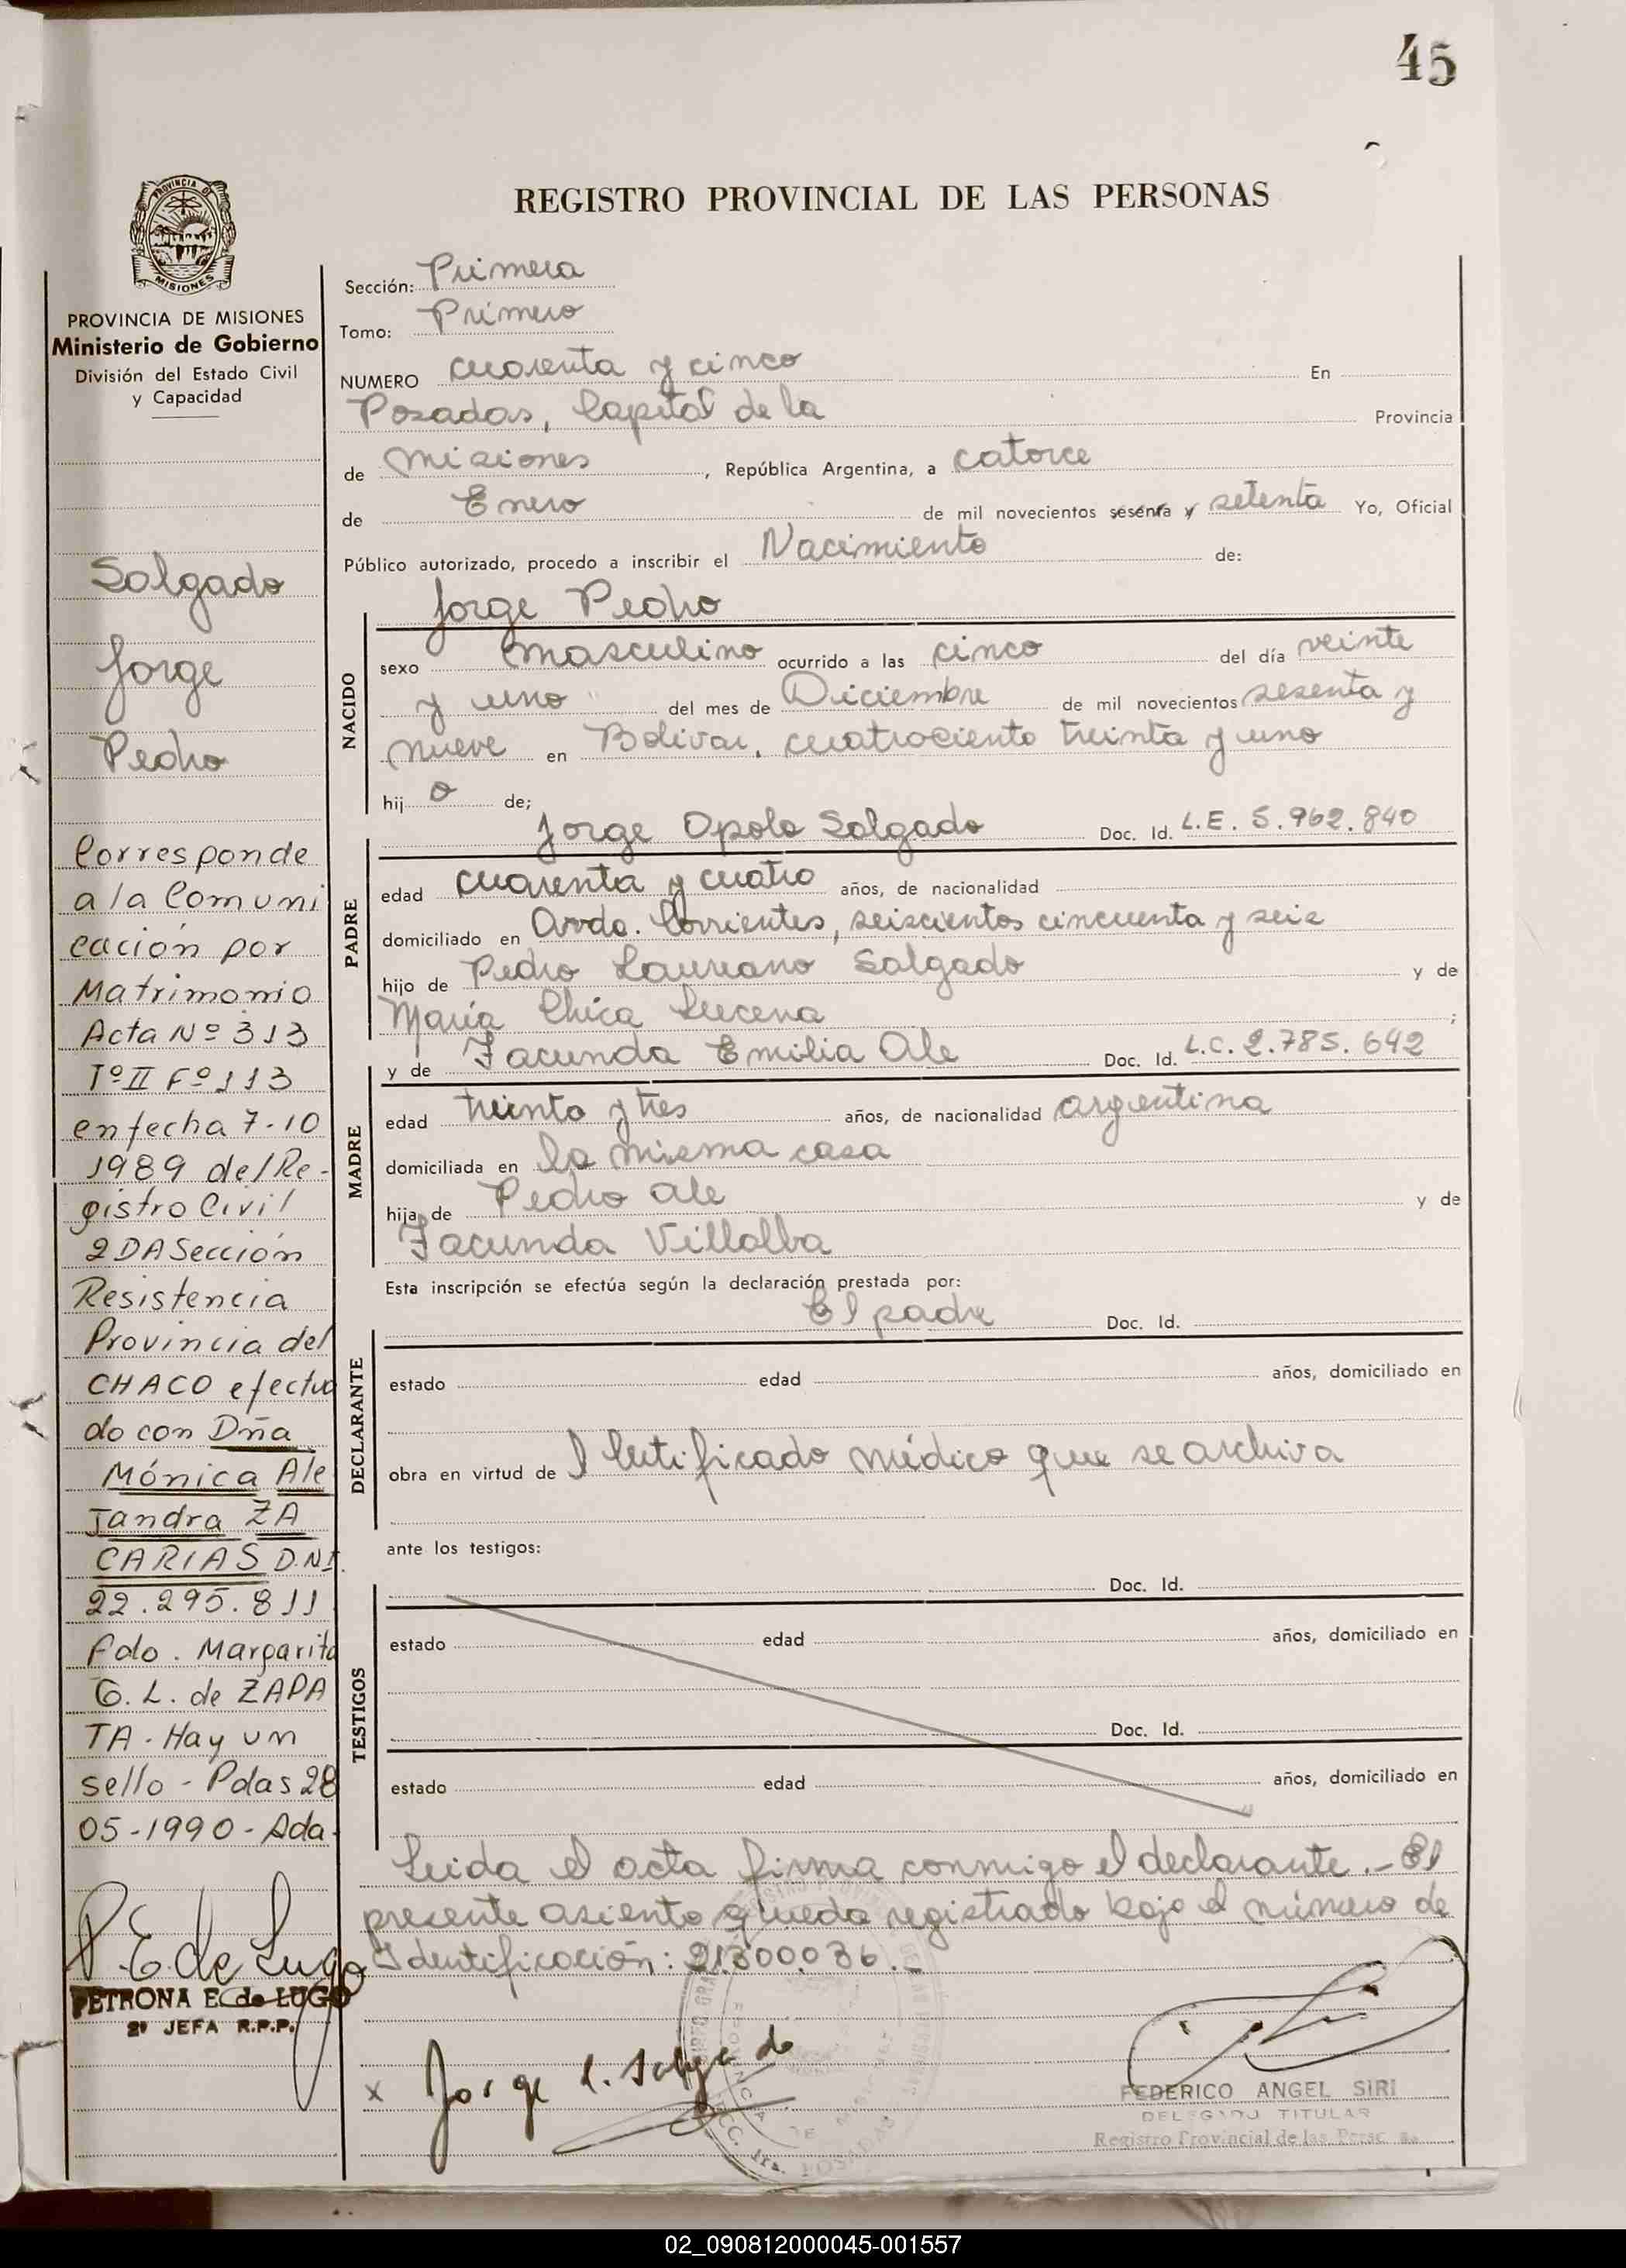 45
REGISTRO PROVINCIAL DE LAS PERSONAS
PROVINCIA DE
MISIONES
PROVINCIA DE MISIONES
Ministerio de Gobierno
División del Estado Civil
y Capacidad
Salgado
Jorge
Pedro
Corresponde
a la Comuni
cación por
Matrimonio
Acta Nº 313
Tº II Fº 113
en fecha 7-10
1989 del Re-
gistro Civil
2DA Sección
Resistencia
Provincia del
CHACO efectua
do con Dña
Mónica Ale
Jandra ZA
CARIAS D.N.I.
22.295.811
Fdo. Margarita
G. L. de ZAPA
TA - Hay un
sello - Pdas 28
05-1990 - Ada.
P. E de Lugo
PETRONA E. de LUGO
2º JEFA R.P.P.
Sección: Primera
Tomo: Primero
NUMERO cuarenta y cinco En
Posadas, Capital de la Provincia
de Misiones, República Argentina, a catorce
de Enero de mil novecientos sesenta y setenta Yo, Oficial
Público autorizado, procedo a inscribir el Nacimiento de:
NACIDO
Jorge Pedro
sexo masculino ocurrido a las cinco del día veinte
y uno del mes de Diciembre de mil novecientos sesenta y
nueve en Bolivar, cuatrociento treinta y uno
hijo de;
PADRE
Jorge Opolo Salgado Doc. Id. L.E. 5.962.840
edad cuarenta y cuatro años, de nacionalidad
domiciliado en Avda. Corrientes, seiscientos cincuenta y seis
hijo de Pedro Laureano Salgado y de
María Chica Lucena ;
MADRE
y de Facunda Emilia Ale Doc. Id. L.C. 2.785.642
edad treinta y tres años, de nacionalidad argentina
domiciliada en la misma casa
hija de Pedro Ale y de
Facunda Villalba
Esta inscripción se efectúa según la declaración prestada por:
DECLARANTE
El padre Doc. Id.
estado edad años, domiciliado en
obra en virtud de l Certificado médico que se archiva
ante los testigos:
TESTIGOS
Doc. Id.
estado edad años, domiciliado en
Doc. Id.
estado edad años, domiciliado en
Leida el acta firma conmigo el declarante.- El
presente asiento queda registrado bajo el número de
Identificación: 21.300.036.-
x Jorge Salgado
FEDERICO ANGEL SIRI
DELEGADO TITULAR
Registro Provincial de las Personas
02_090812000045-001557